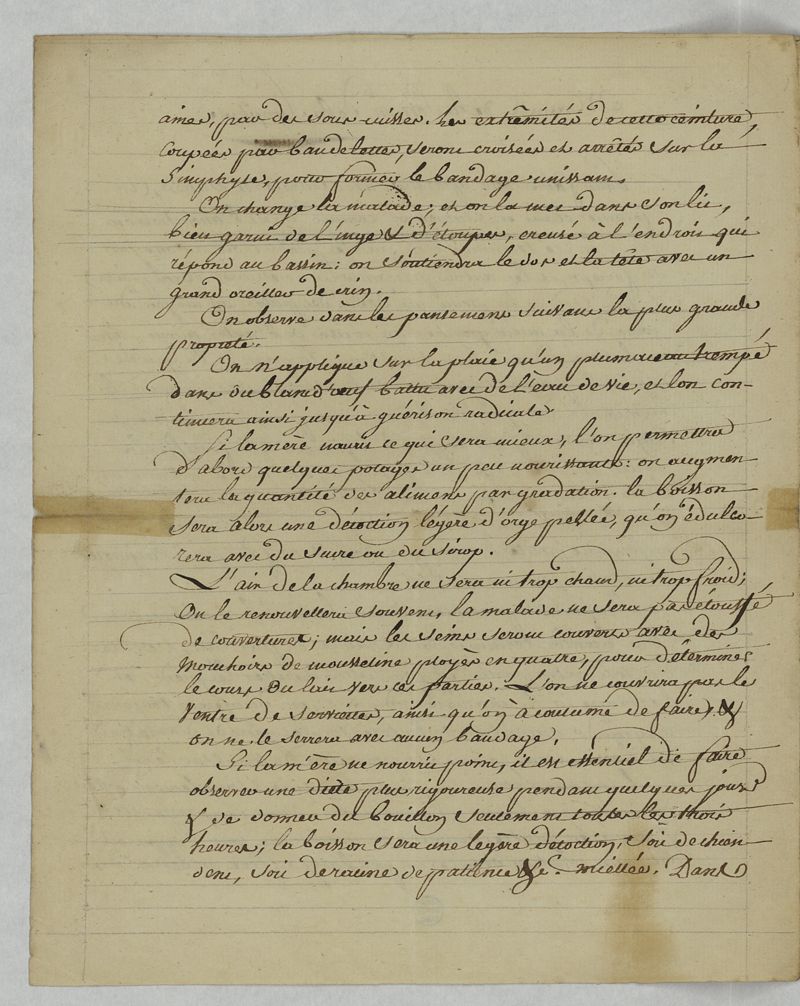 aines, par des sous-cuisses. les extrêmités de cette ceinture,
coupées par bandelettes, seront croisées et arrêtés sur la
Simphyse, pour former le bandage unissant.
On change la malade; et on la met dans son lit,
bien garni de linge & d'étoupes, creusé à l'endroit qui
répond au bassin: on soutiendra le dos et la tête avec un
grand oreiller de crin.
On observe dans les pansemens suivans la plus grande
propreté.
On n'applique sur la plaie qu'un plumaceau trempé
dans du blanc d'œuf battu avec de l'eau de vie, et l'on con-
tinuera ainsi jusqu'à guérison radicale.
Si la mère nourrit ce qui sera mieux, l'on permettra
d'abord quelques potages un peu nourissants: on augmen
tera la quantité des alimens par gradation. la boisson
sera alors une décoction légère d'orge perlée, qu'on édulco-
rera avec du sucre ou du sirop.
L'air de la chambre ne sera ni trop chaud, ni trop froid;
On le renouvellera souvent, la malade ne sera pas étouffé
de couvertures; mais les seins seront couverts avec des
Mouchoirs de mousseline ployés en quatre, pour détermines
le cours du lait vers ces parties. L'on ne couvrira pas le
Ventre de serviettes, ainsi qu'on a coutume de faire, &
on ne le serrera avec aucun bandage.
Si la mère ne nourrit point, il est essentiel de faire
observer une diète plus rigoureuse pendant quelques jours
& de donner du bouillon seulement toutes les trois
heures; la boisson sera une legère décoction, soit de chien
dent, soit de racine de patience &c. miellée. Dans